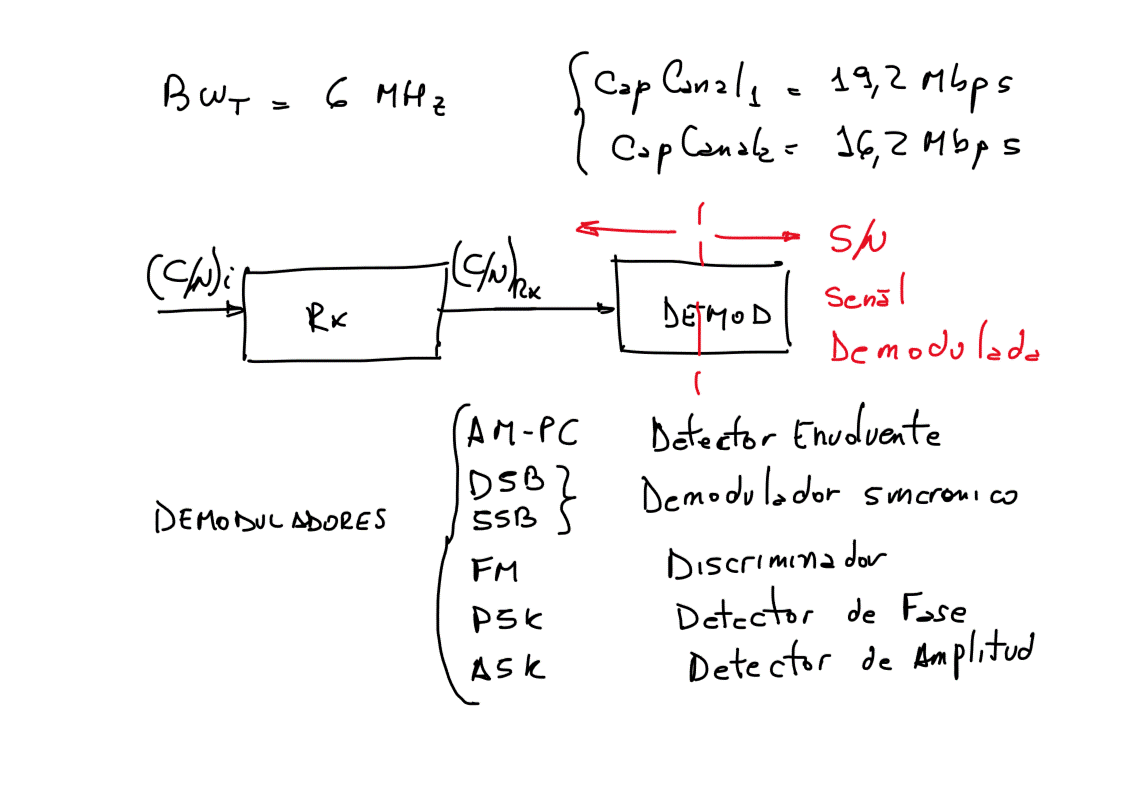 BWT = 6 MHz
Cap Canal1 = 19,2 Mbps
Cap Canal2 = 16,2 Mbps
(C/N)i
Rx
(C/N)Rx
DEMOD
S/N
Señal
Demodulada
DEMODULADORES
AM-PC Detector Envolvente
DSB
SSB
Demodulador sincronico
FM Discriminador
PSK Detector de Fase
ASK Detector de Amplitud